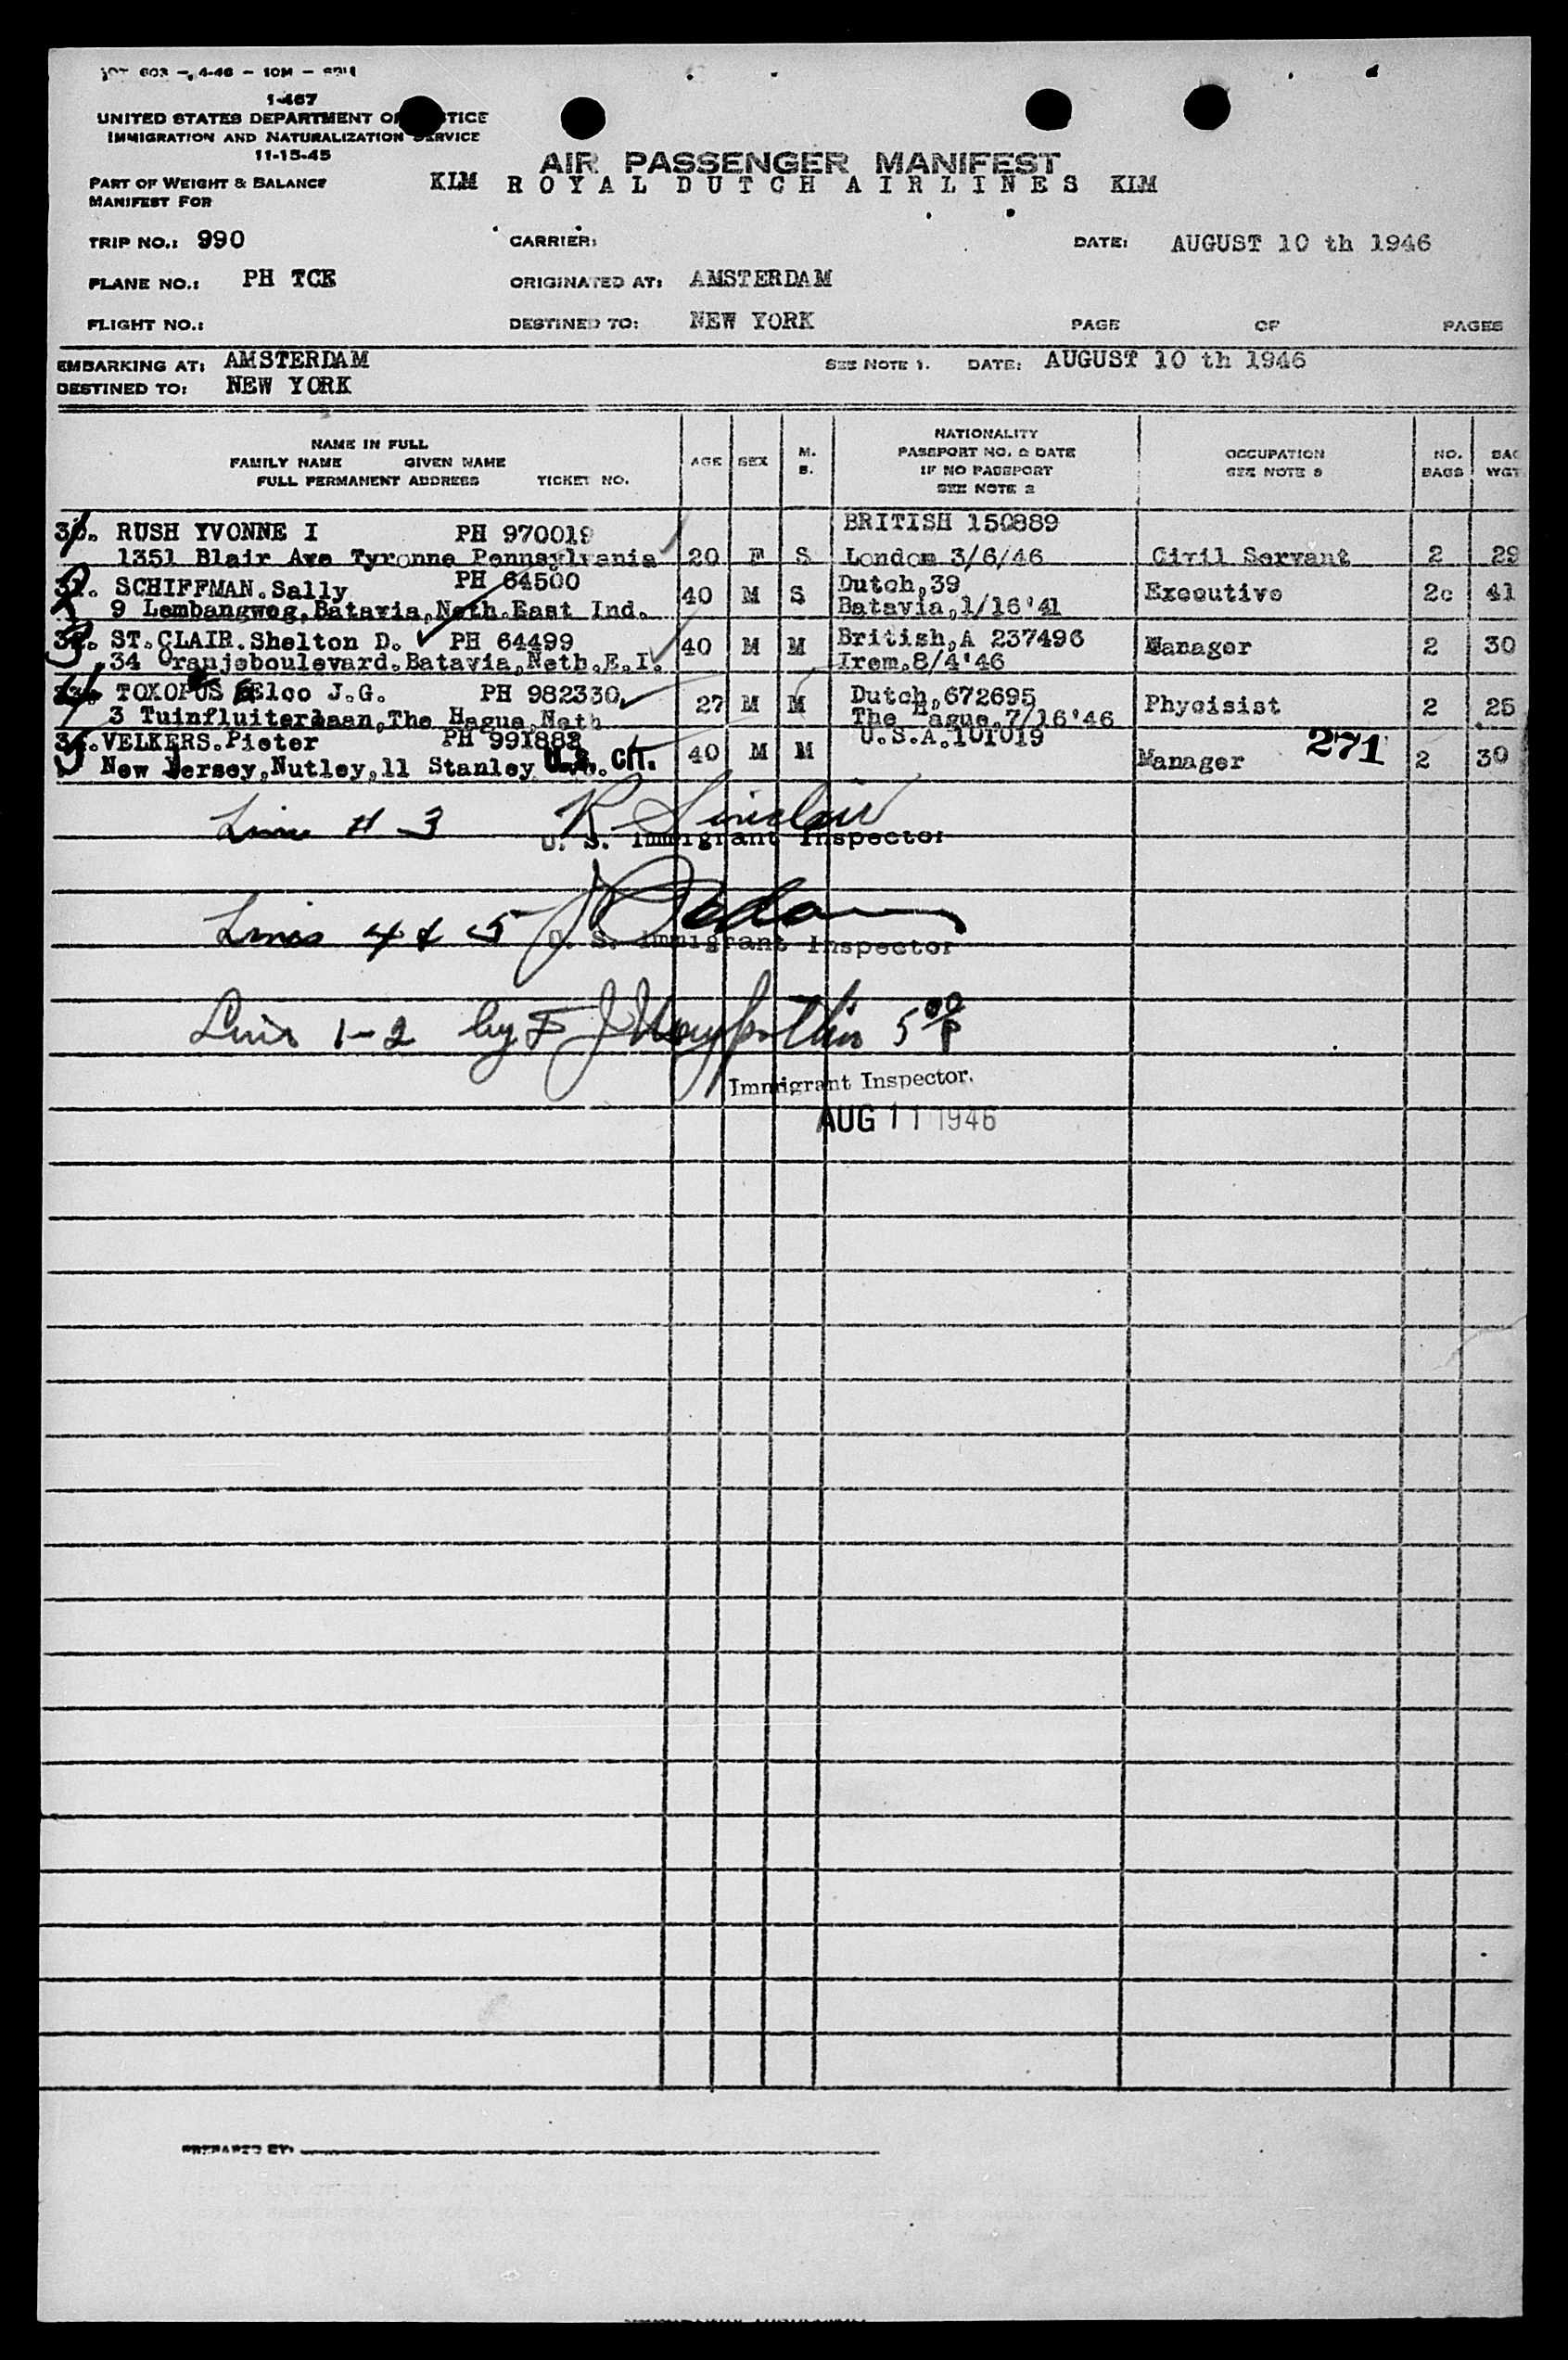 603 - 4-46 - 10M -
1-467
UNITED STATES DEPARTMENT OF JUSTICE
IMMIGRATION AND NATURALIZATION SERVICE
11-15-45
AIR PASSENGER MANIFEST
PART OF WEIGHT & BALANCE
MANIFEST FOR
KLM ROYAL DUTCH AIRLINES KLM
TRIP NO.: 990 CARRIER: DATE: AUGUST 10 th 1946
PLANE NO.: PH TCE ORIGINATED AT: AMSTERDAM
FLIGHT NO.: DESTINED TO: NEW YORK PAGE OF PAGES
EMBARKING AT: AMSTERDAM SEE NOTE 1. DATE: AUGUST 10 th 1946
DESTINED TO: NEW YORK
NAME IN FULL
FAMILY NAME GIVEN NAME
FULL PERMANENT ADDRESS TICKET NO. AGE SEX M. S. NATIONALITY PASSPORT NO. & DATE IF NO PASSPORT SEE NOTE 2 OCCUPATION SEE NOTE 3 NO. BAGS BAG WGT
RUSH YVONNE I PH 970019 BRITISH 150889
1351 Blair Ave Tyronne Pennsylvania 20 F S London 3/6/46 Civil Servant 2 29
31. SCHIFFMAN.Sally PH 64500 40 M S Dutch,39 Executive 2c 41
9 Lembangweg,Batavia,Neth.East Ind. Batavia,1/16'41
32. ST.CLAIR.Shelton D. PH 64499 40 M M British,A 237496 Manager 2 30
34 Oranjeboulevard.Batavia,Neth.E.I. Irem.8/4'46
TOXOPUS Eelco J.G. PH 982330 27 M M Dutch,672695 Phycisist 2 25
3 Tuinfluiterlaan,The Hague,Neth The Hague.7/16'46
34. VELKERS.Pieter PH 991882 40 M M U.S.A.101019 Manager 271 2 30
New Jersey,Nutley,11 Stanley U.S. Cit.
Line # 3 R Sinclair
U. S. Immigrant Inspector
Lines 4 & 5
U. S. Immigrant Inspector
Lines 1-2 by F J 5 00 P
Immigrant Inspector.
AUG 11 1946
PREPARED BY: